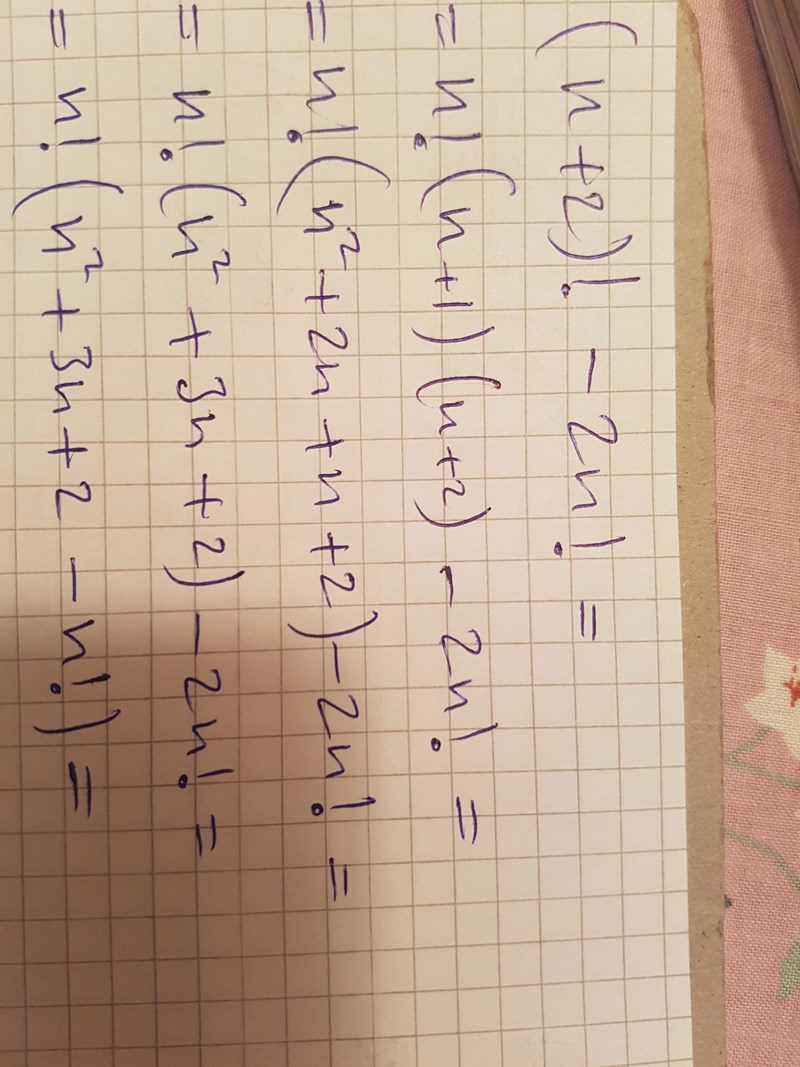 (n+2)! - 2n! =
= n! (n+1) (n+2) - 2n! =
= n! (n² + 2n + n + 2) - 2n! =
= n! (n² + 3n + 2) - 2n! =
= n! (n² + 3n + 2 - n!) =